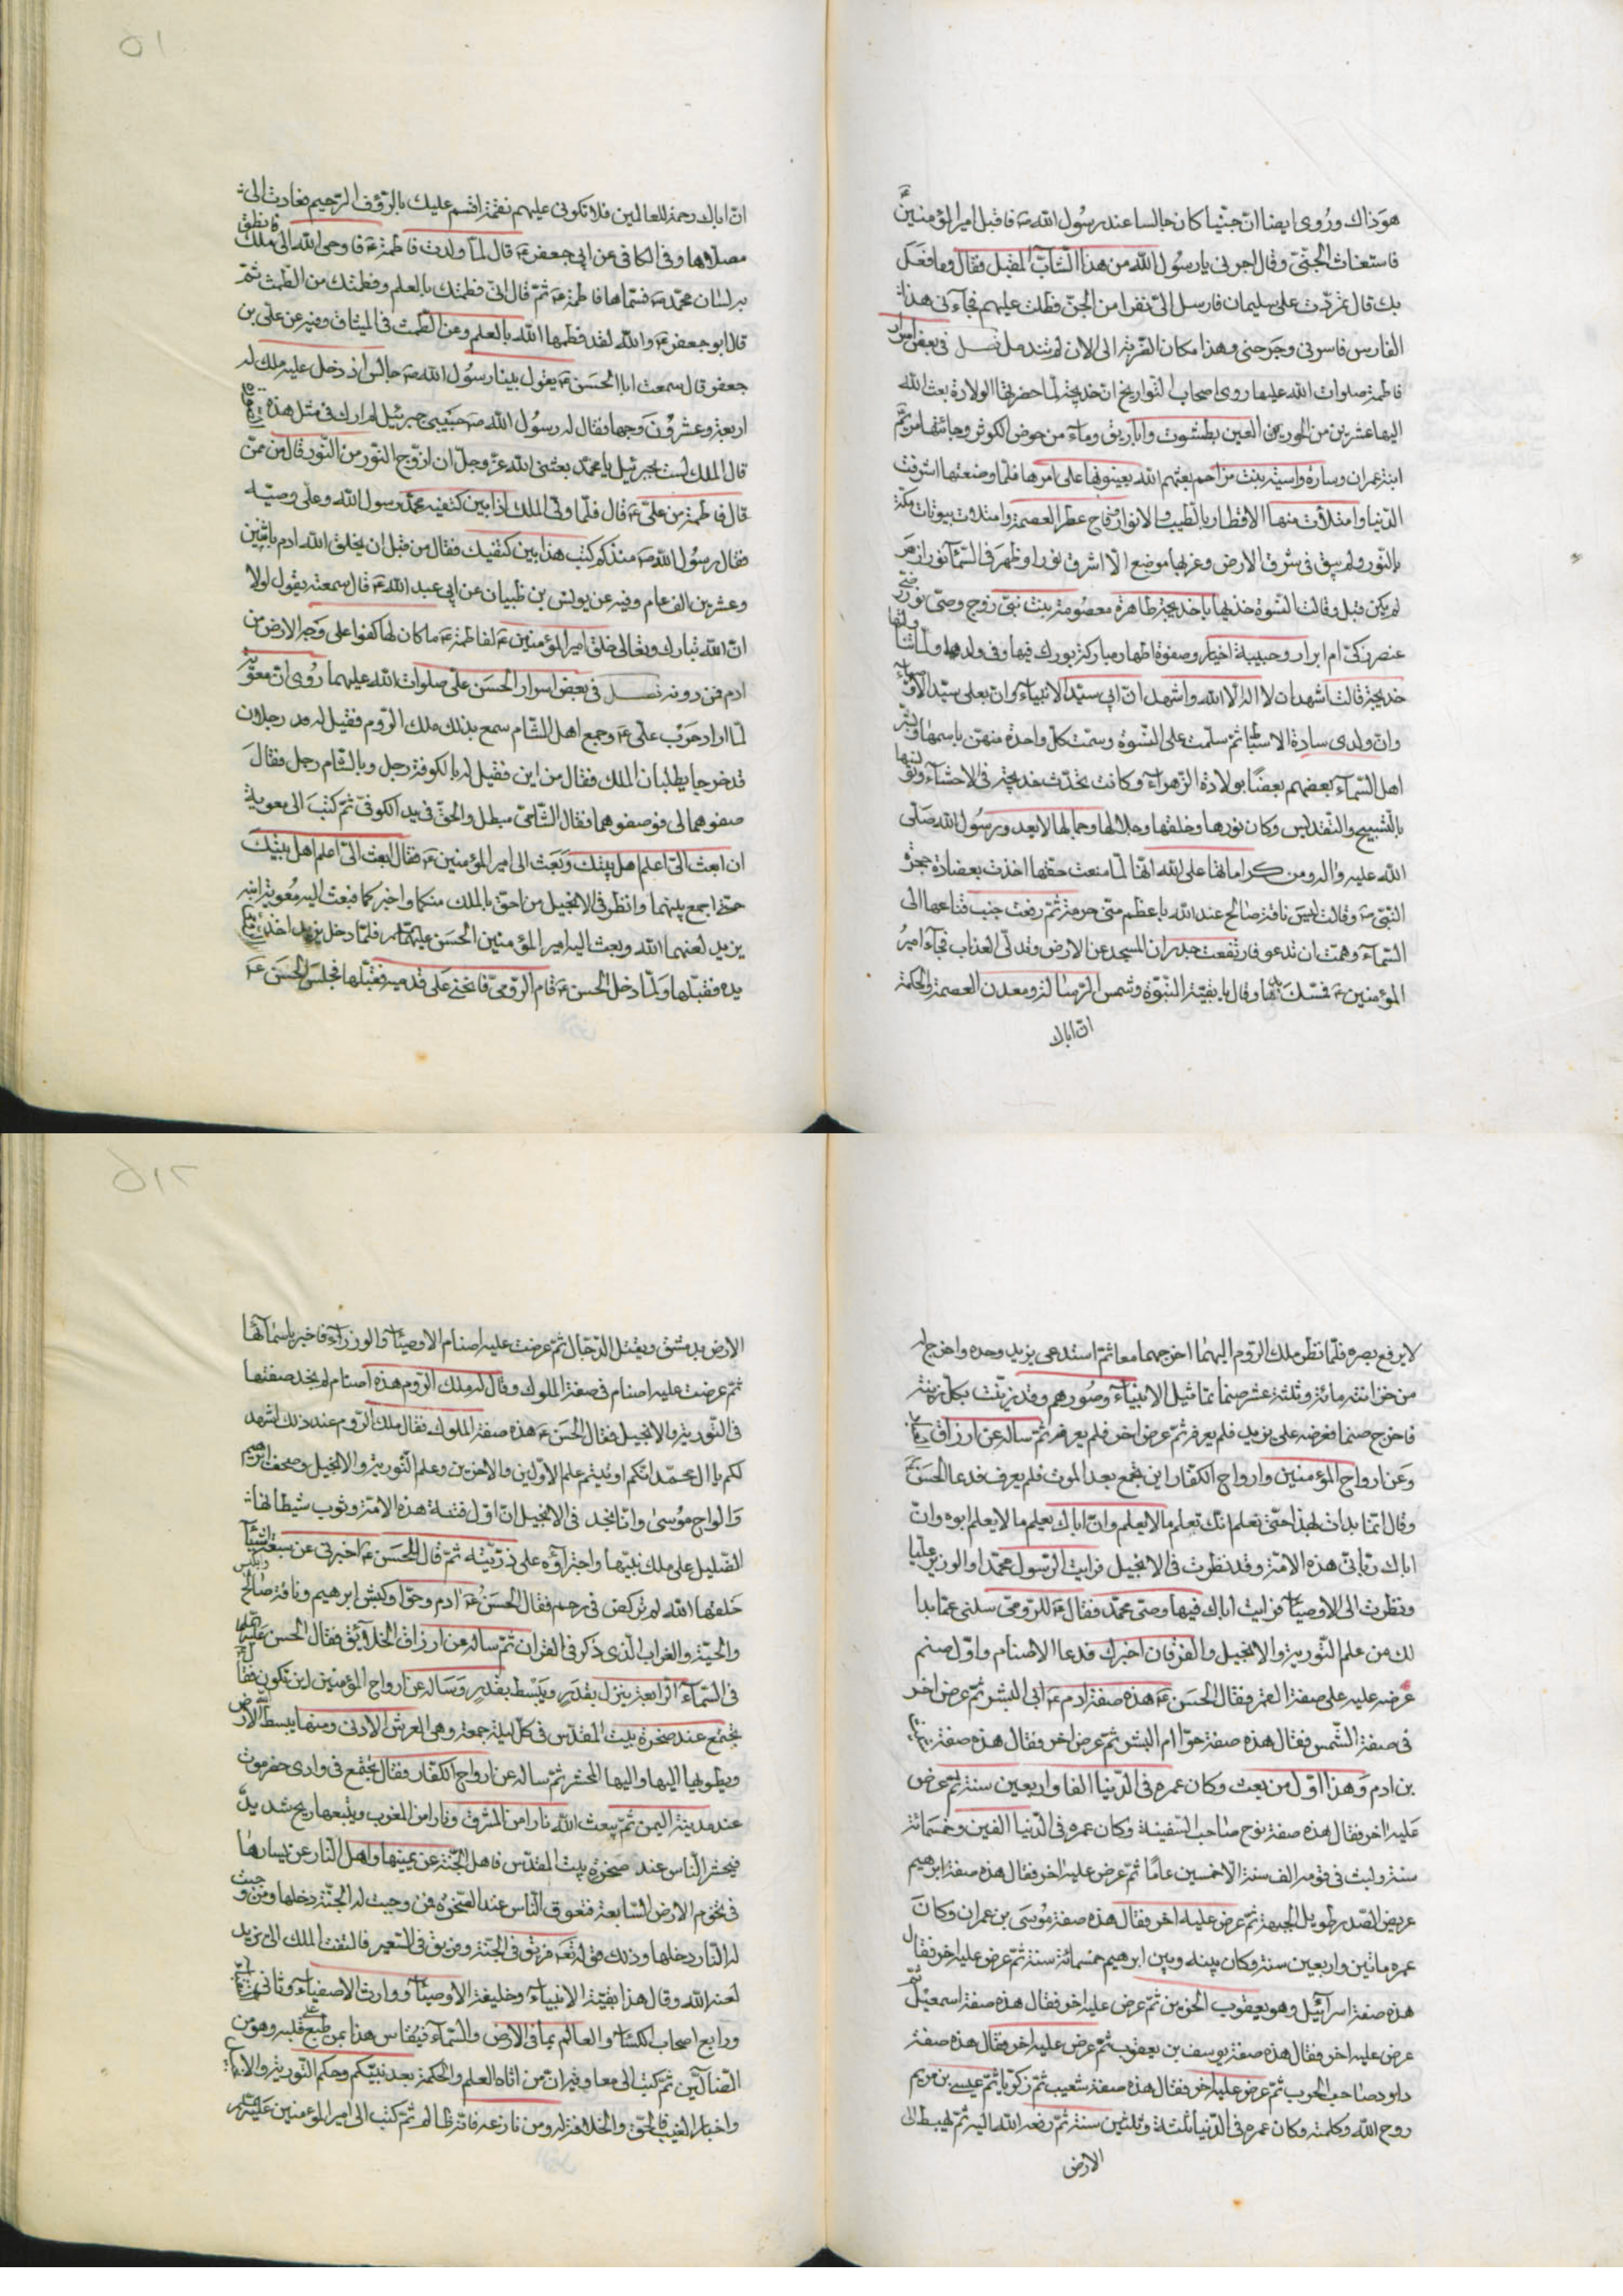 هو ذاك وروى ايضا ان جنيا كان جالسا عند رسول الله صم فاقبل امير المؤمنين عم
فاستغاث الجنى وقال اجرنى يا رسول الله من هذا الشاب المقبل فقال وما فعل
بك قال تمردت على سليمان فارسل الى نفرا من الجن فطلت عليهم فجاءنى هذا
الفارس فاسرنى وجرحنى وهذا مكان الضربة الى الان لم تندمل فصل فى بعض اسرار
فاطمة صلوات الله عليها روى اصحاب التواريخ ان خديجة لما حضرتها الولادة بعث الله
اليها عشرين من الحور العين بطشوت واباريق وماء من حوض الكوثر وجائتها مريم
ابنة عمران وسارة واسية بنت مزاحم بعثهم الله يعينونها على امرها فلما وضعتها اشرقت
الدنيا وامتلأت منها الاقطار بالطيب والانوار وفاح عطر العصمة وامتلات بيوتات مكة
بالنور ولم يبق فى شرق الارض وغربها موضع الا اشرق نورا وظهر فى السماء نور ازهر
لم يكن قبل وقالت النسوة خذيها يا خديجة طاهرة معصومة بنت نبى زوج وصى نور رضى
عنصر زكى ام ابرار وحبيبة اخيار وصفوة اطهار مباركة بورك فيها وفى ولدها ولما تناولتها
خديجة قالت اشهد ان لا اله الا الله واشهد ان ابى سيد الانبياء وان بعلى سيد الاوصياء
وان ولدى سادة الاسباط ثم سلمت على النسوة وسمت كل واحدة منهن باسمها وبشر
اهل السماء بعضهم بعضا بولادة الزهراء وكانت تحدث خديجة فى الاحشاء وتونسها
بالتسبيح والتقديس وكان نورها وخلقها وجلالها وجمالها لا يعدو رسول الله صلى
الله عليه واله ومن كراماتها على الله انها لما منعت حقها اخذت بعضادة حجرة
النبى صم وقالت ليس ناقة صالح عند الله باعظم منى حرمة ثم رفعت جنب قناعها الى
السماء وهمت ان تدعو فارتفعت جدران المسجد عن الارض وتدلى العذاب فجاء امير
المؤمنين عم فمسك يدها وقال يا بقية النبوة وشمس الرسالة ومعدن العصمة والحكمة
ان اباك
ان اباك رحمة للعالمين فلا تكونى عليهم نقمة اقسم عليك بالرؤف الرحيم فعادت الى
مصلاها وفى الكافى عن ابى جعفر عم قال لما ولدت فاطمة عم فاوحى الله الى ملك فانطق
به لسان محمد صم فسماها فاطمة عم ثم قال انى فطمتك بالعلم وفطمتك من الطمث ثم
قال ابو جعفر عم والله لقد فطمها الله بالعلم ومن الطمث فى الميثاق وفيه عن على بن
جعفر قال سمعت ابا الحسن عم يقول بينا رسول الله صم جالس اذ دخل عليه ملك له
اربعة وعشرون وجها فقال له رسول الله صم حبيبى جبرئيل لم ارك فى مثل هذه
قال الملك لست بجبرئيل يا محمد بعثنى الله عز وجل ان ازوج النور من النور قال من ممن
قال فاطمة من على عم قال فلما ولى الملك اذا بين كتفيه محمد رسول الله وعلى وصيه
فقال رسول الله صم منذ كم كتب هذا بين كتفيك فقال من قبل ان يخلق الله ادم باثنين
وعشرين الف عام وفيه عن يونس بن ظبيان عن ابى عبد الله عم قال سمعته يقول لولا
ان الله تبارك وتعالى خلق امير المؤمنين عم لفاطمة عم ما كان لها كفوا على وجه الارض من
ادم فمن دونه فصل فى بعض اسرار الحسن على صلوات الله عليهما روى ان معوية
لما اراد حرب على عم وجمع اهل الشام سمع بذلك ملك الروم فقيل له رجلان
قد خرجا يطلبان الملك فقال من اين فقيل له بالكوفة رجل وبالشام رجل فقال
صفوهما لى فوصفوهما فقال الشامى مبطل والحق فى يد الكوفى ثم كتب الى معوية
ان ابعث الى اعلم اهل بيتك وبعث الى امير المؤمنين عم فقال ابعث الى اعلم اهل بيتك
حتى اجمع بينهما وانظر فى الانجيل من احق بالملك منكما واخبركما فبعث اليه معوية ابنه
يزيد لعنهما الله وبعث اليه امير المؤمنين الحسن عليهما فلما دخل يزيد اخذ
يده فقبلها ولما دخل الحسن عم قام الرومى فانحنى على قدميه فقبلها فجلس الحسن عم
لا يرفع بصره فلما نظر ملك الروم اليهما اخرجهما معا ثم استدعى يزيد وحده واخرج له
من خزانته مائة وثلثة عشر صنما تماثيل الانبياء وصورهم وقد زينت بكل زينة
فاخرج صنما فعرضه على يزيد فلم يعرفه ثم عرض اخر فلم يعرفه ثم ساله عن ارزاق
وعن ارواح المؤمنين وارواح الكفار اين تجمع بعد الموت فلم يعرف فدعا الحسن عم
وقال انما بدات بهذا حتى تعلم انك تعلم ما لا يعلم وان اباك يعلم ما لا يعلم ابوه وان
اباك ربانى هذه الامة وقد نظرت فى الانجيل فرايت الرسول محمدا والوزير عليا
ونظرت الى الاوصياء فرايت اباك فيها وصى محمد فقال عم للرومى سلنى عما بدا
لك من علم التورية والانجيل والفرقان اخبرك فدعا الاصنام واول صنم
عرضه عليه على صفة القمر فقال الحسن عم هذه صفة ادم عم ابى البشر ثم عرض اخر
فى صفة الشمس فقال هذه صفة حوا ام البشر ثم عرض اخر فقال هذه صفة شيث
بن ادم وهذا اول من بعث وكان عمره فى الدنيا الفا واربعين سنة ثم عرض
عليه اخر فقال هذه صفة نوح صاحب السفينة وكان عمره فى الدنيا الفين وخمسمائة
سنة ولبث فى قومه الف سنة الا خمسين عاما ثم عرض عليه اخر فقال هذه صفة ابرهيم
عريض الصدر طويل الجبهة ثم عرض عليه اخر فقال هذه صفة موسى بن عمران وكان
عمره ماتين واربعين سنة وكان بينه وبين ابرهيم خمسمائة سنة ثم عرض عليه اخر فقال
هذه صفة اسرائيل وهو يعقوب الحزين ثم عرض عليه اخر فقال هذه صفة اسمعيل ثم
عرض عليه اخر فقال هذه صفة يوسف بن يعقوب ثم عرض عليه اخر فقال هذه صفة
داود صاحب الحرب ثم عرض عليه اخر فقال هذه صفة شعيب ثم زكريا ثم عيسى بن مريم
روح الله وكلمته وكان عمره فى الدنيا ثلثة وثلثين سنة ثم رفعه الله اليه ثم يهبط الى
الارض
الارض بدمشق ويقتل الدجال ثم عرضت عليه اصنام الاوصياء والوزراء فاخبر باسمائها
ثم عرضت عليه اصنام فى صفة الملوك وقال له ملك الروم هذه اصنام لم نجد صفتها
فى التورية والانجيل فقال الحسن عم هذه صفة الملوك فقال ملك الروم عند ذلك اشهد
لكم يا ال محمد انكم اوتيتم علم الاولين والاخرين وعلم التورية والانجيل وصحف ابرهيم
والواح موسى وانا نجد فى الانجيل ان اول فتنة هذه الامة وثوب شيطانها
الضليل على ملك نبيها واجتراؤه على ذريته ثم قال للحسن عم اخبرنى عن سبعة اشياء
خلقها الله لم تركض فى رحم فقال الحسن عم ادم وحوا وكبش ابرهيم وناقة صالح وابليس
والحية والغراب الذى ذكر فى القران ثم ساله عن ارزاق الخلائق فقال الحسن عليه
فى السماء الرابعة ينزل بقدر ويبسط بقدر وساله عن ارواح المؤمنين اين تكون فقال
تجتمع عند صخرة بيت المقدس فى كل ليلة جمعة وهى العرش الادنى ومنها يبسط الله الارض
ويطويها اليها واليها المحشر ثم ساله عن ارواح الكفار فقال تجتمع فى وادى حضرموت
عند مدينة اليمن ثم يبعث الله نارا من المشرق ونارا من المغرب ويتبعها ريح شديد
فيحشر الناس عند صخرة بيت المقدس فاهل الجنة عن يمينها واهل النار عن يسارها
فى تخوم الارض السابعة فتعرق الناس عند الصخرة فمن وجبت له الجنة دخلها ومن وجبت
له النار دخلها وذلك قوله تعم فريق فى الجنة وفريق فى السعير فالتفت الملك الى يزيد
لعنه الله وقال هذا بقية الانبياء وخليفة الاوصياء ووارث الاصفياء وثانى
ورابع اصحاب الكساء والعالم بما فى الارض والسماء فيقاس هذا بمن طبع على قلبه وهو من
الضالين ثم كتب الى معاوية ان من اتاه العلم والحكمة بعد نبيكم وحكم التورية والانجيل
واخبار الغيب فالحق والخلافة له ومن نازعه فانه ظالم ثم كتب الى امير المؤمنين عليه